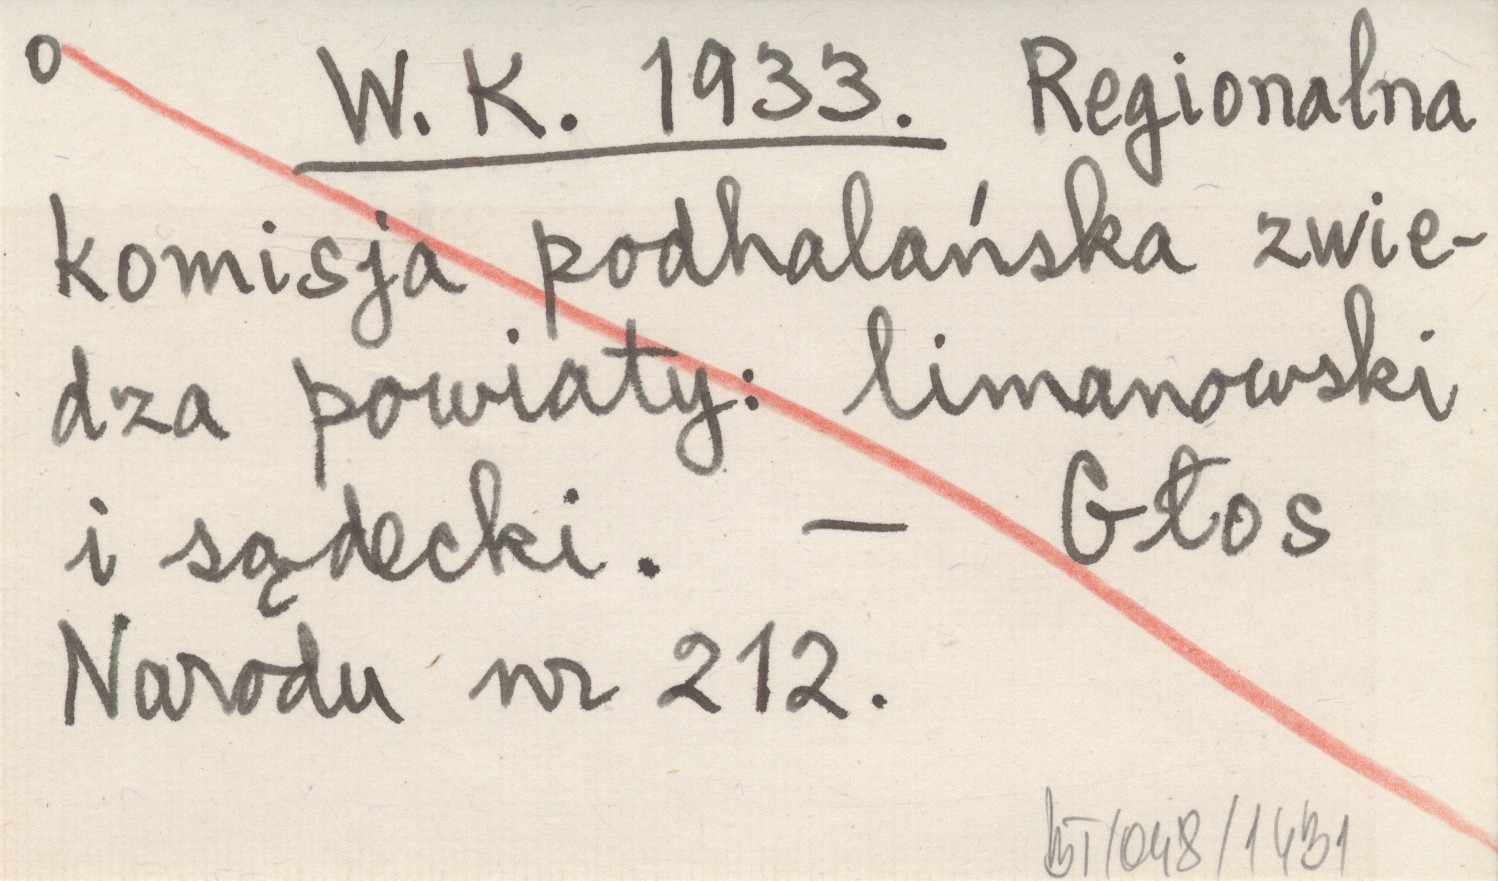 o W. K. 1933. Regionalna
komisja podhalańska zwie-
dza powiaty: limanowski
i sądecki. — Głos
Narodu nr 212.
BT/048/1431